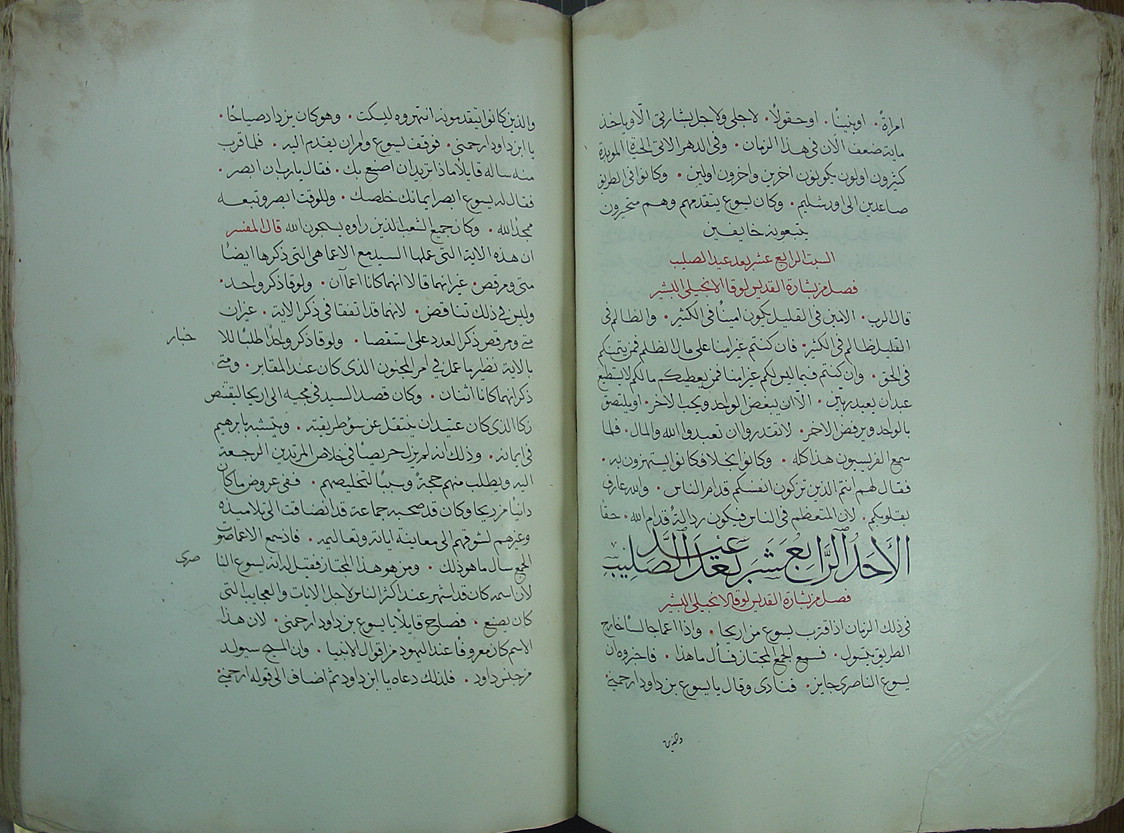 امراةً. او بنينًا. او حقولًا. لاجلي ولاجل بشارتي الّا وياخذ
ماية ضعف الان في هذا الزمان. وفي الدهر الاتي الحياة الموبدة
كثيرون اولون يكونون اخرين واخرون اولين. وكانوا في الطريق
صاعدين الى اورشليم. وكان يسوع يتقدمهم وهم متحيرون
يتبعونه خايفين
السبت الرابع عشر بعد عيد الصليب
فصل من بشارة القديس لوقا الانجيلي البشير
قال الرب. الامين في القليل يكون امينًا في الكثير. والظالم في
القليل ظالم في الكثير. فان كنتم غير امنا على مال الظلم فمن يتمنكم
في الحق. وان كنتم فيما ليس لكم غير امنا فمن يعطيكم مالكم لا يستطيع
عبدان يعبد ربين. الّا ان يبغض الواحد ويحب الاخر. او يلتصق
بالواحد ويرفض الاخر. لا تقدروا ان تعبدوا الله والمال. فلما
سمع الفريسيون هذا كله. وكانوا بخلا فكانوا يستهزون به.
فقال لهم انتم الذين تزكون انفسكم قدام الناس. والله عارف
بقلوبكم. لان المتعظم في الناس فيكون رذالة قدام الله. حقا
الاحد الرابع عشر بعد عيد الصليب
فصل من بشارة القديس لوقا الانجيلي البشير
في ذلك الزمان اذ اقترب يسوع من اريحا. واذا اعما جالسًا خارج
الطريق يتسول. فسمع الجمع المجتاز فسأل ما هذا. فاخبروه ان
يسوع الناصري جايز. فنادى وقال يا يسوع بن داود ارحمني.
والذين
والذين كانوا يتقدمونه انتهروه ليسكت. وهو كان يزداد صياحًا.
يا ابن داود ارحمني. فوقف يسوع وامر ان يقدم اليه. فلما قرب
منه ساله قايلًا ماذا تريد ان اصنع بك. فقال يا رب ان ابصر.
فقال له يسوع ابصر ايمانك خلصك. وللوقت ابصر وتبعه
مجدًا لله. وكان جميع الشعب الذين راوه يسبحون الله قال المفسر
ان هذه الاية التي عملها السيد مع الاعما هي التي ذكرها ايضًا
متى ومرقص. غير انهما قالا انهما كانا اعماآن. ولوقا ذكر واحد.
وليس في ذلك تناقض. لانهما قد اتفقا في ذكر الاية. غير ان
متى ومرقص ذكرا العدد على استقصا. ولوقا ذكر واحدًا طلبًا للا
خبار
بالاية نظير ما عمل في امر المجنون الذي كان عند المقابر. ومتى
ذكر انهما كانا اثنان. وكان قصد السيد في مجيه الى اريحا ليقتنص
زكا الذي كان عتيدان ينتقل عن سو طريقته. ويتشبه بابرهيم
في ايمانه. وذلك انه لم يزل حريصًا في خلاص المرتدين الرجعة
اليه ويطلب منهم حجةً وسببًا لتخليصهم. ففي عروض ما كان
دانيًا من ريحا وكان قد صحبه جماعة قد انضافت الى تلاميذه
وغيرهم لشوقهم الى معاينة اياته وتعاليمه. فاذ سمع الاعما صوت
الجمع سال ما هو ذلك. ومن هو هذا المجتاز فقيل له انه يسوع النا
صري
لان اسمه كان قد اشهر عند اكثر الناس لاجل الايات والعجايب التي
كان يصنع. فصاح قايلًا يا يسوع بن داود ارحمني. لان هذا
الاسم كان معروفًا عند اليهود من اقوال الانبيا. وان المسيح سيولد
من جنس داود. فلذلك دعاه يا ابن داود ثم اضاف الى قوله ارحمني